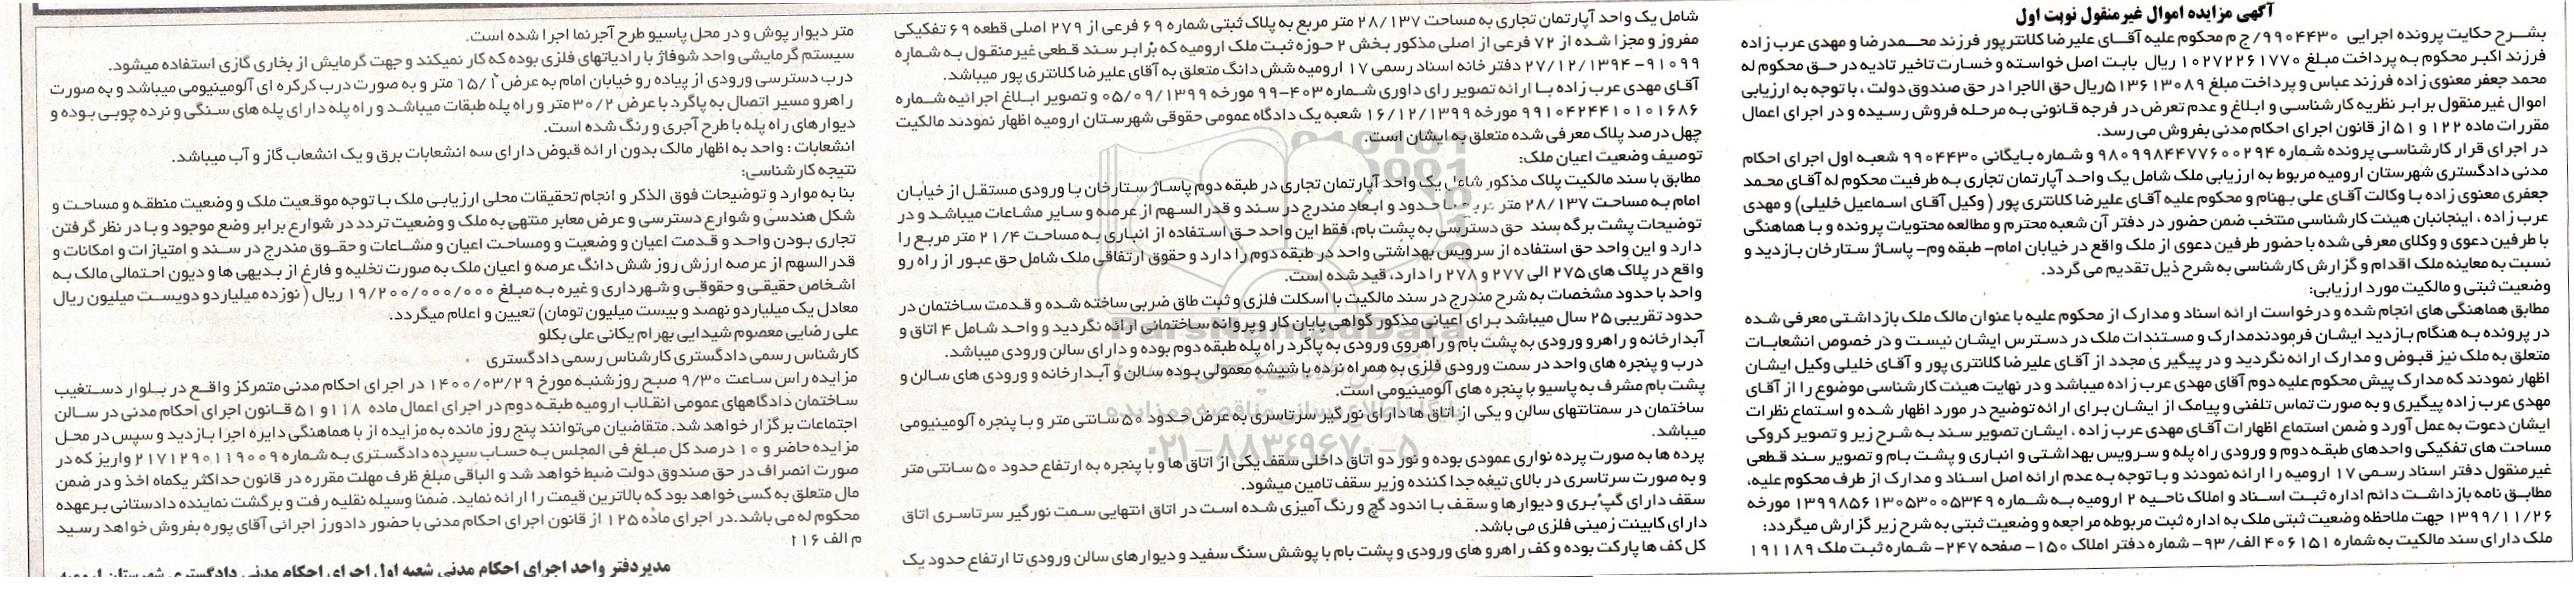 آگهی مزایده اموال غیرمنقول نوبت اول
بشرح حکایت پرونده اجرایی ۹۹۰۴۴۳۰/ج م محکوم علیه آقای علیرضا کلانترپور فرزند محمدرضا و مهدی عرب زاده
فرزند اکبر محکوم به پرداخت مبلغ ۱۰۲۷۲۲۶۱۷۷۰ ریال بابت اصل خواسته و خسارت تاخیر تادیه در حق محکوم له
محمد جعفر معنوی زاده فرزند عباس و پرداخت مبلغ ۵۱۳۶۱۳۰۸۹ریال حق الاجرا در حق صندوق دولت ، با توجه به ارزیابی
اموال غیرمنقول برابر نظریه کارشناسی و ابلاغ و عدم تعرض در فرجه قانونی به مرحله فروش رسیده و در اجرای اعمال
مقررات ماده ۱۲۲ و ۵۱ از قانون اجرای احکام مدنی بفروش می رسد.
در اجرای قرار کارشناسی پرونده شماره ۹۸۰۹۹۸۴۴۷۷۶۰۰۲۹۴ و شماره بایگانی ۹۹۰۴۴۳۰ شعبه اول اجرای احکام
مدنی دادگستری شهرستان ارومیه مربوط به ارزیابی ملک شامل یک واحد آپارتمان تجاری به طرفیت محکوم له آقای محمد
جعفری معنوی زاده با وکالت آقای علی بهنام و محکوم علیه آقای علیرضا کلانتری پور ( وکیل آقای اسماعیل خلیلی) و مهدی
عرب زاده ، اینجانبان هیئت کارشناسی منتخب ضمن حضور در دفتر آن شعبه محترم و مطالعه محتویات پرونده و با هماهنگی
با طرفین دعوی و وکلای معرفی شده با حضور طرفین دعوی از ملک واقع در خیابان امام- طبقه وم- پاساژ ستارخان بازدید و
نسبت به معاینه ملک اقدام و گزارش کارشناسی به شرح ذیل تقدیم می گردد.
وضعیت ثبتی و مالکیت مورد ارزیابی:
مطابق هماهنگی های انجام شده و درخواست ارائه اسناد و مدارک از محکوم علیه با عنوان مالک ملک بازداشتی معرفی شده
در پرونده به هنگام بازدید ایشان فرمودندمدارک و مستندات ملک در دسترس ایشان نیست و در خصوص انشعابات
متعلق به ملک نیز قبوض و مدارک ارائه نگردید و در پیگیری مجدد از آقای علیرضا کلانتری پور و آقای خلیلی وکیل ایشان
اظهار نمودند که مدارک پیش محکوم علیه دوم آقای مهدی عرب زاده میباشد و در نهایت هیئت کارشناسی موضوع را از آقای
مهدی عرب زاده پیگیری و به صورت تماس تلفنی و پیامک از ایشان برای ارائه توضیح در مورد اظهار شده و استماع نظرات
ایشان دعوت به عمل آورد و ضمن استماع اظهارات آقای مهدی عرب زاده ، ایشان تصویر سند به شرح زیر و تصویر کروکی
مساحت های تفکیکی واحدهای طبقه دوم و ورودی راه پله و سرویس بهداشتی و انباری و پشت بام و تصویر سند قطعی
غیرمنقول دفتر اسناد رسمی ۱۷ ارومیه را ارائه نمودند و با توجه به عدم ارائه اصل اسناد و مدارک از طرف محکوم علیه،
مطابق نامه بازداشت دائم اداره ثبت اسناد و املاک ناحیه ۲ ارومیه به شماره ۱۳۹۹۸۵۶۱۳۰۵۳۰۰۵۳۴۹ مورخه
۱۳۹۹/۱۱/۲۶ جهت ملاحظه وضعیت ثبتی ملک به اداره ثبت مربوطه مراجعه و وضعیت ثبتی به شرح زیر گزارش میگردد:
ملک دارای سند مالکیت به شماره ۴۰۶۱۵۱ الف/۹۳- شماره دفتر املاک ۱۵۰- صفحه ۲۴۷- شماره ثبت ملک ۱۹۱۱۸۹
شامل یک واحد آپارتمان تجاری به مساحت ۲۸/۱۳۷ متر مربع به پلاک ثبتی شماره ۶۹ فرعی از ۲۷۹ اصلی قطعه ۶۹ تفکیکی
مفروز و مجزا شده از ۷۲ فرعی از اصلی مذکور بخش ۲ حوزه ثبت ملک ارومیه که برابر سند قطعی غیرمنقول به شماره
۹۱۰۹۹- ۲۷/۱۲/۱۳۹۴ دفتر خانه اسناد رسمی ۱۷ ارومیه شش دانگ متعلق به آقای علیرضا کلانتری پور میباشد.
آقای مهدی عرب زاده با ارائه تصویر رای داوری شماره ۴۰۳-۹۹ مورخه ۰۵/۰۹/۱۳۹۹ و تصویر ابلاغ اجرائیه شماره
۹۹۱۰۴۲۴۴۱۰۱۰۱۶۸۶ مورخه ۱۶/۱۲/۱۳۹۹ شعبه یک دادگاه عمومی حقوقی شهرستان ارومیه اظهار نمودند مالکیت
چهل درصد پلاک معرفی شده متعلق به ایشان است.
توصیف وضعیت اعیان ملک:
مطابق با سند مالکیت پلاک مذکور شامل یک واحد آپارتمان تجاری در طبقه دوم پاساژ ستارخان با ورودی مستقل از خیابان
امام به مساحت ۲۸/۱۳۷ متر مربع با حدود و ابعاد مندرج در سند و قدر السهم از عرصه و سایر مشاعات میباشد و در
توضیحات پشت برگه سند حق دسترسی به پشت بام، فقط این واحد حق استفاده از انباری به مساحت ۲۱/۴ متر مربع را
دارد و این واحد حق استفاده از سرویس بهداشتی واحد در طبقه دوم را دارد و حقوق ارتفاقی ملک شامل حق عبور از راه رو
واقع در پلاک های ۲۷۵ الی ۲۷۷ و ۲۷۸ را دارد، قید شده است.
واحد با حدود مشخصات به شرح مندرج در سند مالکیت با اسکلت فلزی و ثبت طاق ضربی ساخته شده و قدمت ساختمان در
حدود تقریبی ۲۵ سال میباشد برای اعیانی مذکور گواهی پایان کار و پروانه ساختمانی ارائه نگردید و واحد شامل ۴ اتاق و
آبدارخانه و راهرو ورودی به پشت بام و راهروی ورودی به پاگرد راه پله طبقه دوم بوده و دارای سالن ورودی میباشد.
درب و پنجره های واحد در سمت ورودی فلزی به همراه نرده با شیشه معمولی بوده سالن و آبدارخانه و ورودی های سالن و
پشت بام مشرف به پاسیو با پنجره های آلومینیومی است.
ساختمان در سمتانتهای سالن و یکی از اتاق ها دارای نورگیر سرتاسری به عرض حدود ۵۰ سانتی متر و با پنجره آلومینیومی
میباشد.
پرده ها به صورت پرده نواری عمودی بوده و نور دو اتاق داخلی سقف یکی از اتاق ها و با پنجره به ارتفاع حدود ۵۰ سانتی متر
و به صورت سرتاسری در بالای تیغه جدا کننده وزیر سقف تامین میشود.
سقف دارای گچ بری و دیوارها و سقف با اندود گچ و رنگ آمیزی شده است در اتاق انتهایی سمت نورگیر سرتاسری اتاق
دارای کابینت زمینی فلزی می باشد.
کل کف ها پارکت بوده و کف راهرو های ورودی و پشت بام با پوشش سنگ سفید و دیوارهای سالن ورودی تا ارتفاع حدود یک
متر دیوار پوش و در محل پاسیو طرح آجرنما اجرا شده است.
سیستم گرمایشی واحد شوفاژ با رادیاتهای فلزی بوده که کار نمیکند و جهت گرمایش از بخاری گازی استفاده میشود.
درب دسترسی ورودی از پیاده رو خیابان امام به عرض ۱۵/۱ متر و به صورت درب کرکره ای آلومینیومی میباشد و به صورت
راهرو مسیر اتصال به پاگرد با عرض ۳۰/۲ متر و راه پله طبقات میباشد و راه پله دارای پله های سنگی و نرده چوبی بوده و
دیوارهای راه پله با طرح آجری و رنگ شده است.
انشعابات : واحد به اظهار مالک بدون ارائه قبوض دارای سه انشعابات برق و یک انشعاب گاز و آب میباشد.
نتیجه کارشناسی:
بنا به موارد و توضیحات فوق الذکر و انجام تحقیقات محلی ارزیابی ملک با توجه موقعیت ملک و وضعیت منطقه و مساحت و
شکل هندسی و شوارع دسترسی و عرض معابر منتهی به ملک و وضعیت تردد در شوارع برابر وضع موجود و با در نظر گرفتن
تجاری بودن واحد و قدمت اعیان و وضعیت و ومساحت اعیان و مشاعات و حقوق مندرج در سند و امتیازات و امکانات و
قدرالسهم از عرصه ارزش روز شش دانگ عرصه و اعیان ملک به صورت تخلیه و فارغ از بدیهی ها و دیون احتمالی مالک به
اشخاص حقیقی و حقوقی و شهرداری و غیره به مبلغ ۱۹/۲۰۰/۰۰۰/۰۰۰ ریال ( نوزده میلیاردو دویست میلیون ریال
معادل یک میلیاردو نهصد و بیست میلیون تومان) تعیین و اعلام میگردد.
علی رضایی معصوم شیدایی بهرام یکانی علی بکلو
کارشناس رسمی دادگستری کارشناس رسمی دادگستری
مزایده راس ساعت ۹/۳۰ صبح روزشنبه مورخ ۱۴۰۰/۰۳/۲۹ در اجرای احکام مدنی متمرکز واقع در بلوار دستغیب
ساختمان دادگاههای عمومی انقلاب ارومیه طبقه دوم در اجرای اعمال ماده ۱۱۸و ۵۱ قانون اجرای احکام مدنی در سالن
اجتماعات برگزار خواهد شد. متقاضیان می‌توانند پنج روز مانده به مزایده از با هماهنگی دایره اجرا بازدید و سپس در محل
مزایده حاضر و ۱۰ درصد کل مبلغ فی المجلس به حساب سپرده دادگستری به شماره ۲۱۷۱۲۹۰۱۱۹۰۰۹ واریز که در
صورت انصراف در حق صندوق دولت ضبط خواهد شد و الباقی مبلغ ظرف مهلت مقرره در قانون حداکثر یکماه اخذ و در ضمن
مال متعلق به کسی خواهد بود که بالاترین قیمت را ارائه نماید. ضمنا وسیله نقلیه رفت و برگشت نماینده دادستانی برعهده
محکوم له می باشد.در اجرای ماده ۱۲۵ از قانون اجرای احکام مدنی با حضور دادورز اجرائی آقای پوره بفروش خواهد رسید
م الف ۱۱۶
مدیردفتر واحد اجرای احکام مدنی شعبه اول اجرای احکام مدنی دادگستری شهرستان ارومیه
ParsNamadData
۰۲۱-۸۸۳۴۹۶۷۰-۵